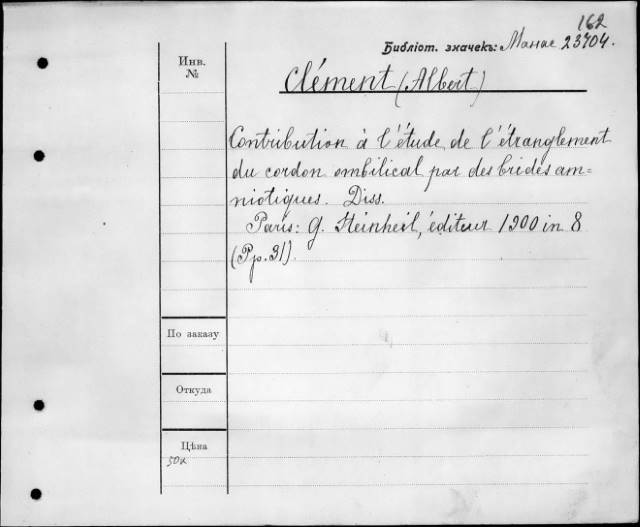 162
Библіот. значекъ: Манас 23704.
Инв.
№
Clément (Albert)
Contribution à l'étude de l'étranglement
du cordon ombilical par des brides am=
niotiques. Diss.
Paris: G. Steinheil, éditeur 1900 in 8
(Pp. 31).
По заказу
Откуда
Цѣна
50к